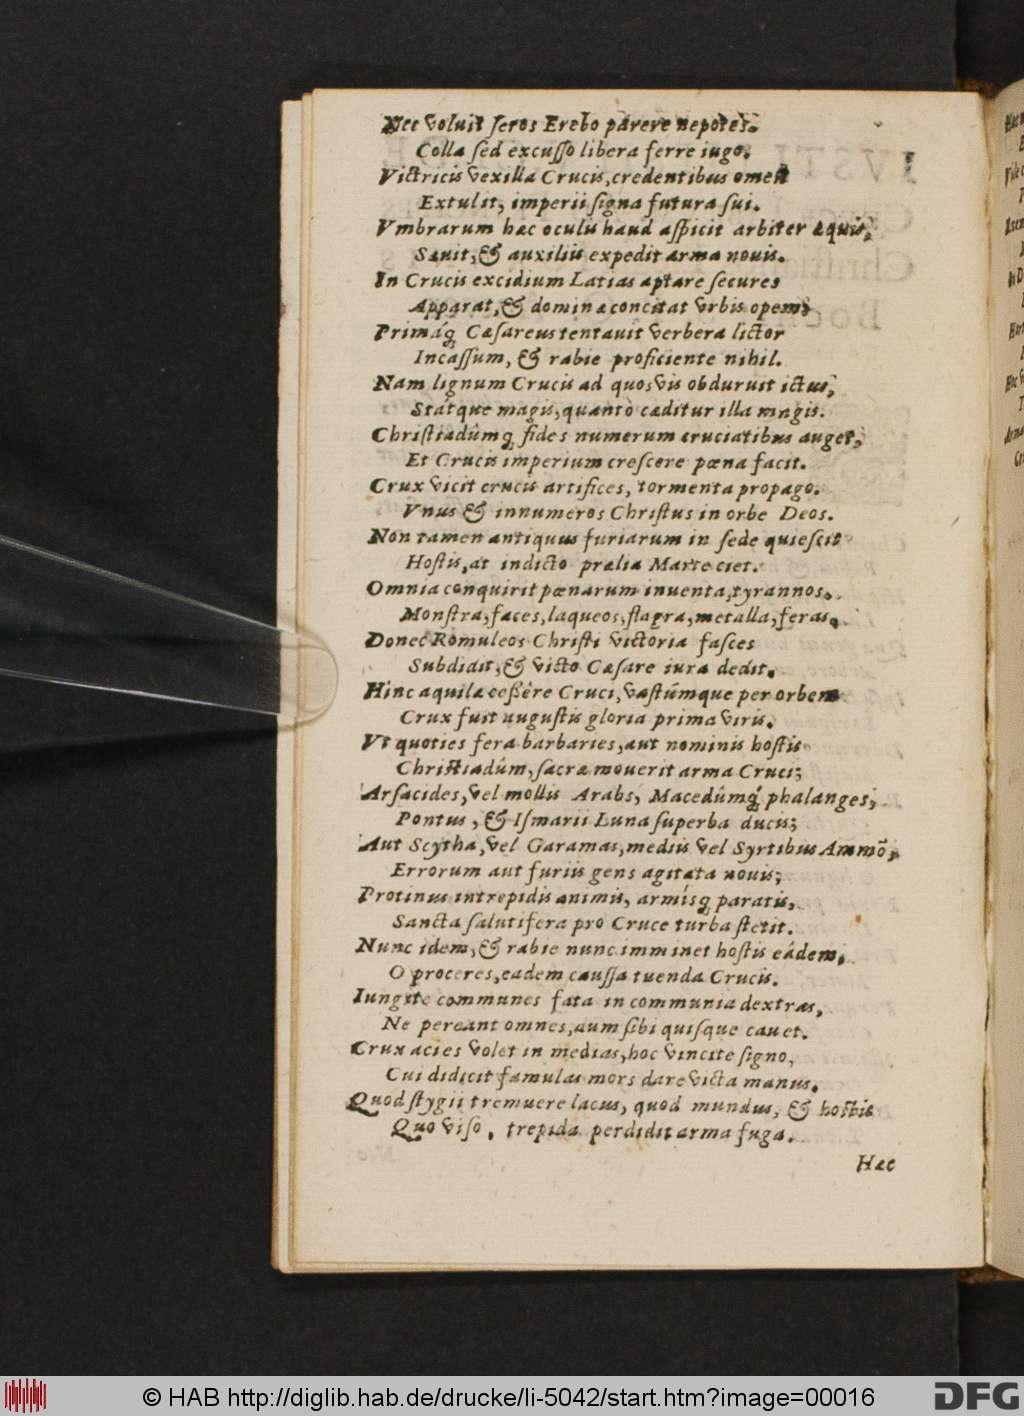 Nec voluit seros Erebo parere nepotes.
Colla sed excusso libera ferre iugo.
Victricis vexilla Crucis, credentibus omen
Extulit, imperii signa futura sui.
Vmbrarum hæc oculis haud aspicit arbiter æquis,
Sæuit, & auxiliis expedit arma nouis.
In Crucis excidium Latias aptare secures
Apparat, & dominæ concitat vrbis opem,
Primáq; Cæsareus tentauit verbera lictor
Incassum, & rabie proficiente nihil.
Nam lignum Crucis ad quosvis obduruit ictus,
Státque magis, quantò cæditur illa magis.
Christiadûmq; fides numerum cruciatibus auget,
Et Crucis imperium crescere pœna facit.
Crux vicit crucis artifices, tormenta propago.
Vnus & innumeros Christus in orbe Deos.
Non tamen antiquus furiarum in sede quiescit
Hostis, at indicto prælia Marte ciet.
Omnia conquirit pœnarum inuenta, tyrannos.
Monstra, faces, laqueos, flagra, metalla, feras.
Donec Romuleos Christi victoria fasces
Subdidit, & victo Cæsare iura dedit.
Hinc aquilæ ceßêre Cruci, vastúmque per orbem
Crux fuit augustis gloria prima viris.
Vt quoties fera barbaries, aut nominis hostis
Christiadûm, sacra mouerit arma Cruci;
Arsacides, vel mollis Arabs, Macedûmq́; phalanges,
Pontus, & Ismarii Luna superba ducis;
Aut Scytha, vel Garamas, mediis vel Syrtibus Ammõ,
Errorum aut furiis gens agitata nouis;
Protinus intrepidis animis, armísq; paratis,
Sancta salutifera pro Cruce turba stetit.
Nunc idem, & rabie nunc imminet hostis eâdem,
O proceres, eadem caussa tuenda Crucis.
Iungite communes fata in communia dextras,
Ne pereant omnes, dum sibi quisque cauet.
Crux acies volet in medias, hoc vincite signo,
Cui didicit famulas mors dare victa manus.
Quod stygii tremuere lacus, quod mundus, & hostis
Quo viso, trepida perdidit arma fuga.
Hæc
© HAB http://diglib.hab.de/drucke/li-5042/start.htm?image=00016
DFG